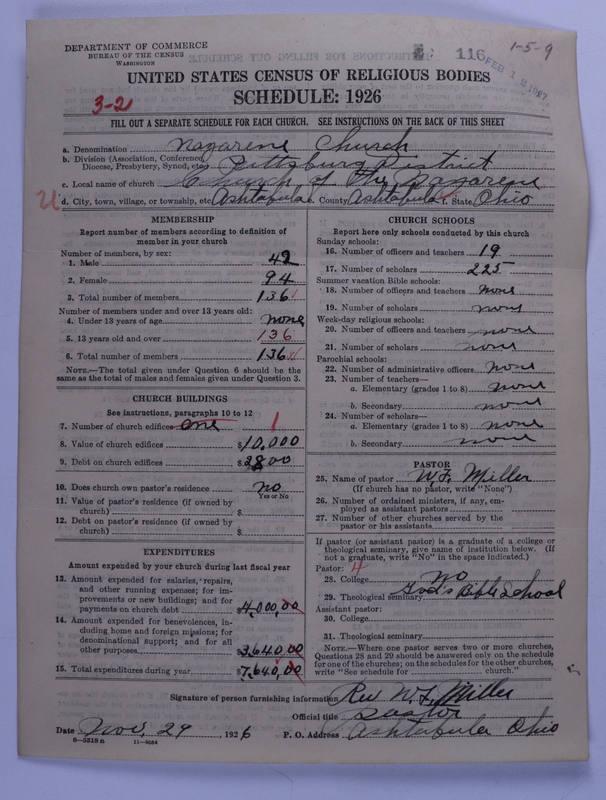 DEPARTMENT OF COMMERCE
BUREAU OF THE CENSUS
WASHINGTON
116
1-5-9
FEB 12 1927
UNITED STATES CENSUS OF RELIGIOUS BODIES
SCHEDULE: 1926
3-21
FILL OUT A SEPARATE SCHEDULE FOR EACH CHURCH. SEE INSTRUCTIONS ON THE BACK OF THIS SHEET
a. Denomination Nazarene Church
b. Division (Association, Conference, Diocese, Presbytery, Synod, etc.) Pittsburg District
c. Local name of church Church of the Nazarene
d. City, town, village, or township, etc. Ashtabula e. County Ashtabula f. State Ohio
MEMBERSHIP
Report number of members according to definition of
member in your church
Number of members, by sex:
1. Male 42
2. Female 94
3. Total number of members 136
Number of members under and over 13 years old:
4. Under 13 years of age none
5. 13 years old and over 136
6. Total number of members 136
NOTE.—The total given under Question 6 should be the
same as the total of males and females given under Question 3.
CHURCH BUILDINGS
See instructions, paragraphs 10 to 12
7. Number of church edifices one 1
8. Value of church edifices $10,000
9. Debt on church edifices $2800
10. Does church own pastor's residence no
Yes or No
11. Value of pastor's residence (if owned by
church) $
12. Debt on pastor's residence (if owned by
church) $
EXPENDITURES
Amount expended by your church during last fiscal year
13. Amount expended for salaries, repairs,
and other running expenses; for im-
provements or new buildings; and for
payments on church debt $4,000,00
14. Amount expended for benevolences, in-
cluding home and foreign missions; for
denominational support; and for all
other purposes $3,640,00
15. Total expenditures during year $7,640,00
CHURCH SCHOOLS
Report here only schools conducted by this church
Sunday schools:
16. Number of officers and teachers 19
17. Number of scholars 225
Summer vacation Bible schools:
18. Number of officers and teachers none
19. Number of scholars none
Week-day religious schools:
20. Number of officers and teachers none
21. Number of scholars none
Parochial schools:
22. Number of administrative officers none
23. Number of teachers—
a. Elementary (grades 1 to 8) none
b. Secondary none
24. Number of scholars—
a. Elementary (grades 1 to 8) none
b. Secondary none
PASTOR
25. Name of pastor W. F. Miller
(If church has no pastor, write "None")
26. Number of ordained ministers, if any, em-
ployed as assistant pastors
27. Number of other churches served by the
pastor or his assistants
If pastor (or assistant pastor) is a graduate of a college or
theological seminary, give name of institution below. (If
not a graduate, write "No" in the space indicated.)
Pastor: 4
28. College no
29. Theological seminary God's Bible School
Assistant pastor:
30. College
31. Theological seminary
NOTE.—Where one pastor serves two or more churches,
Questions 28 and 29 should be answered only on the schedule
for one of the churches; on the schedules for the other churches,
write "See schedule for church."
Signature of person furnishing information Rev W. F. Miller
Official title Pastor
Date Nov, 29, 1926 P. O. Address Ashtabula Ohio
8—5318a 11—9054